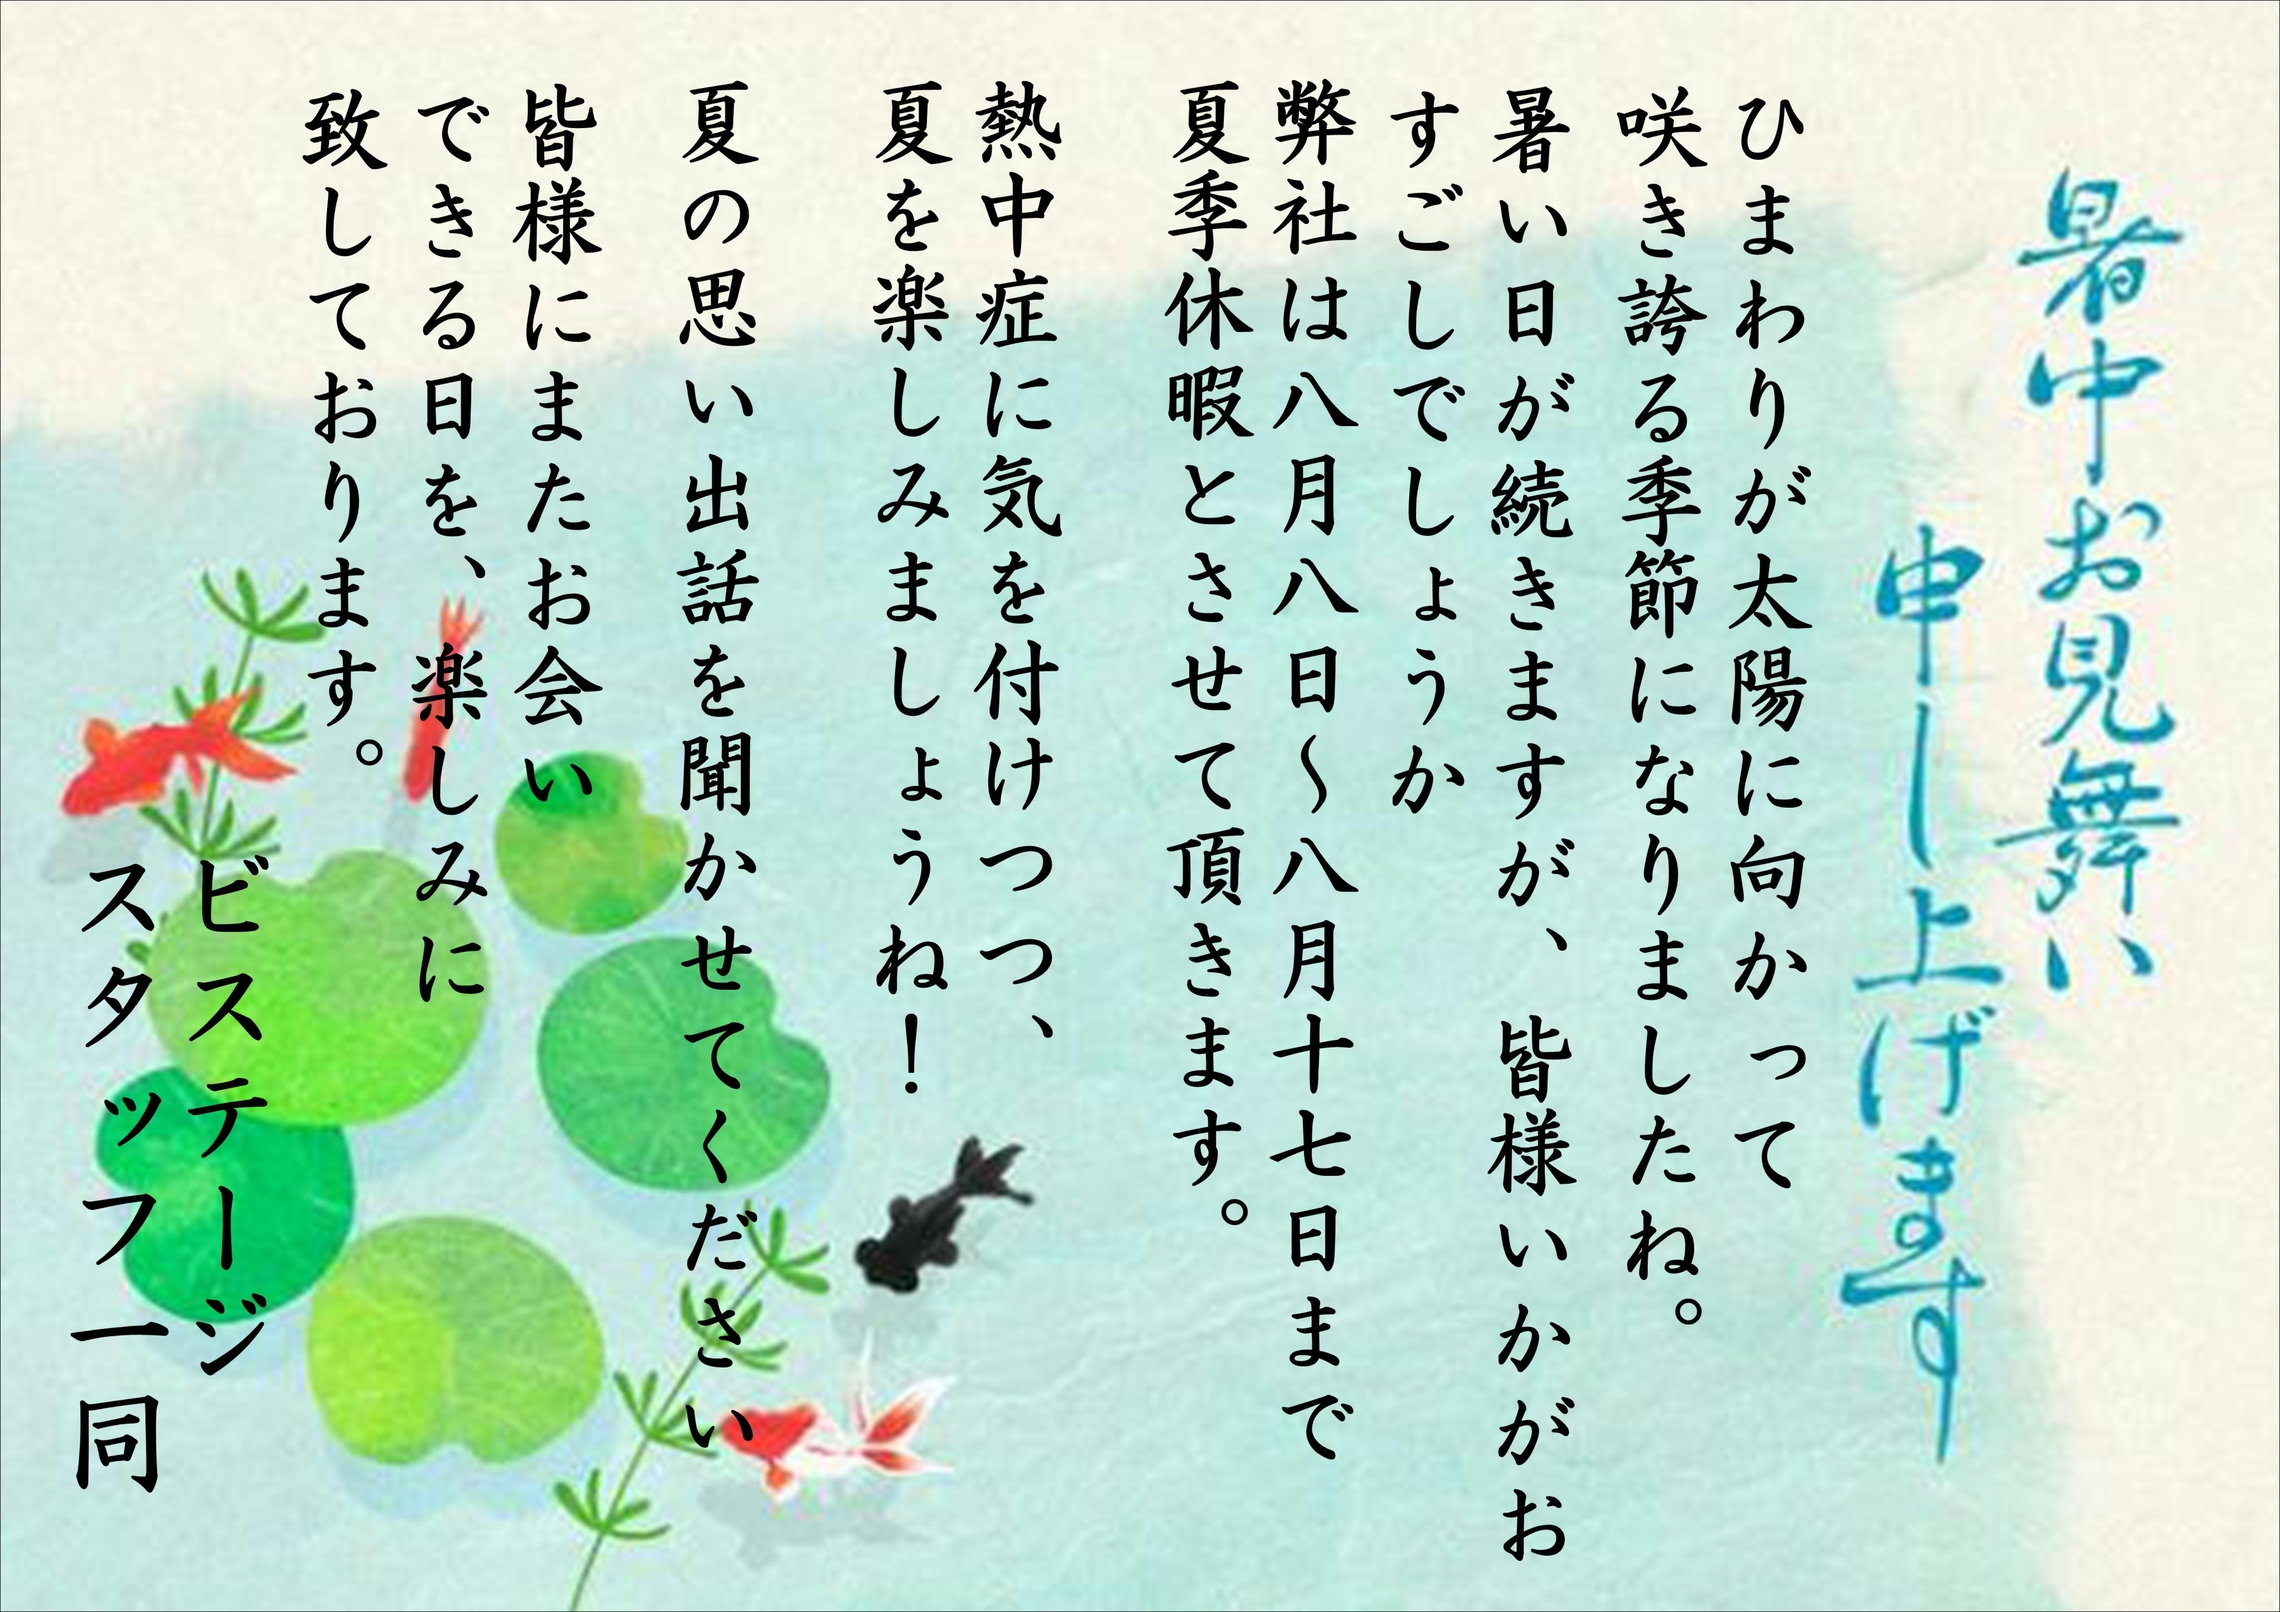 暑中お見舞い
申し上げます
ひまわりが太陽に向かって
咲き誇る季節になりましたね。
暑い日が続きますが、皆様いかがお
すごしでしょうか
弊社は八月八日～八月十七日まで
夏季休暇とさせて頂きます。
熱中症に気を付けつつ、
夏を楽しみましょうね！
夏の思い出話を聞かせてください
皆様にまたお会い
できる日を、楽しみに
致しております。
ビステージ
スタッフ一同